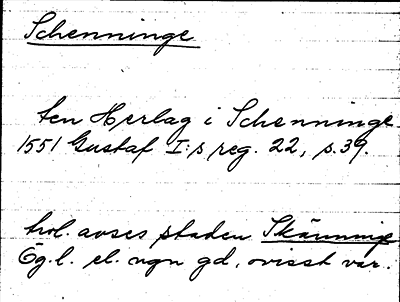 Schenninge
ten Herlag i Schenninge
1551 Gustaf I:s reg. 22, s. 39.
trol. avses staden Skänninge
Ög.l. el. ngn gd, ovisst var.